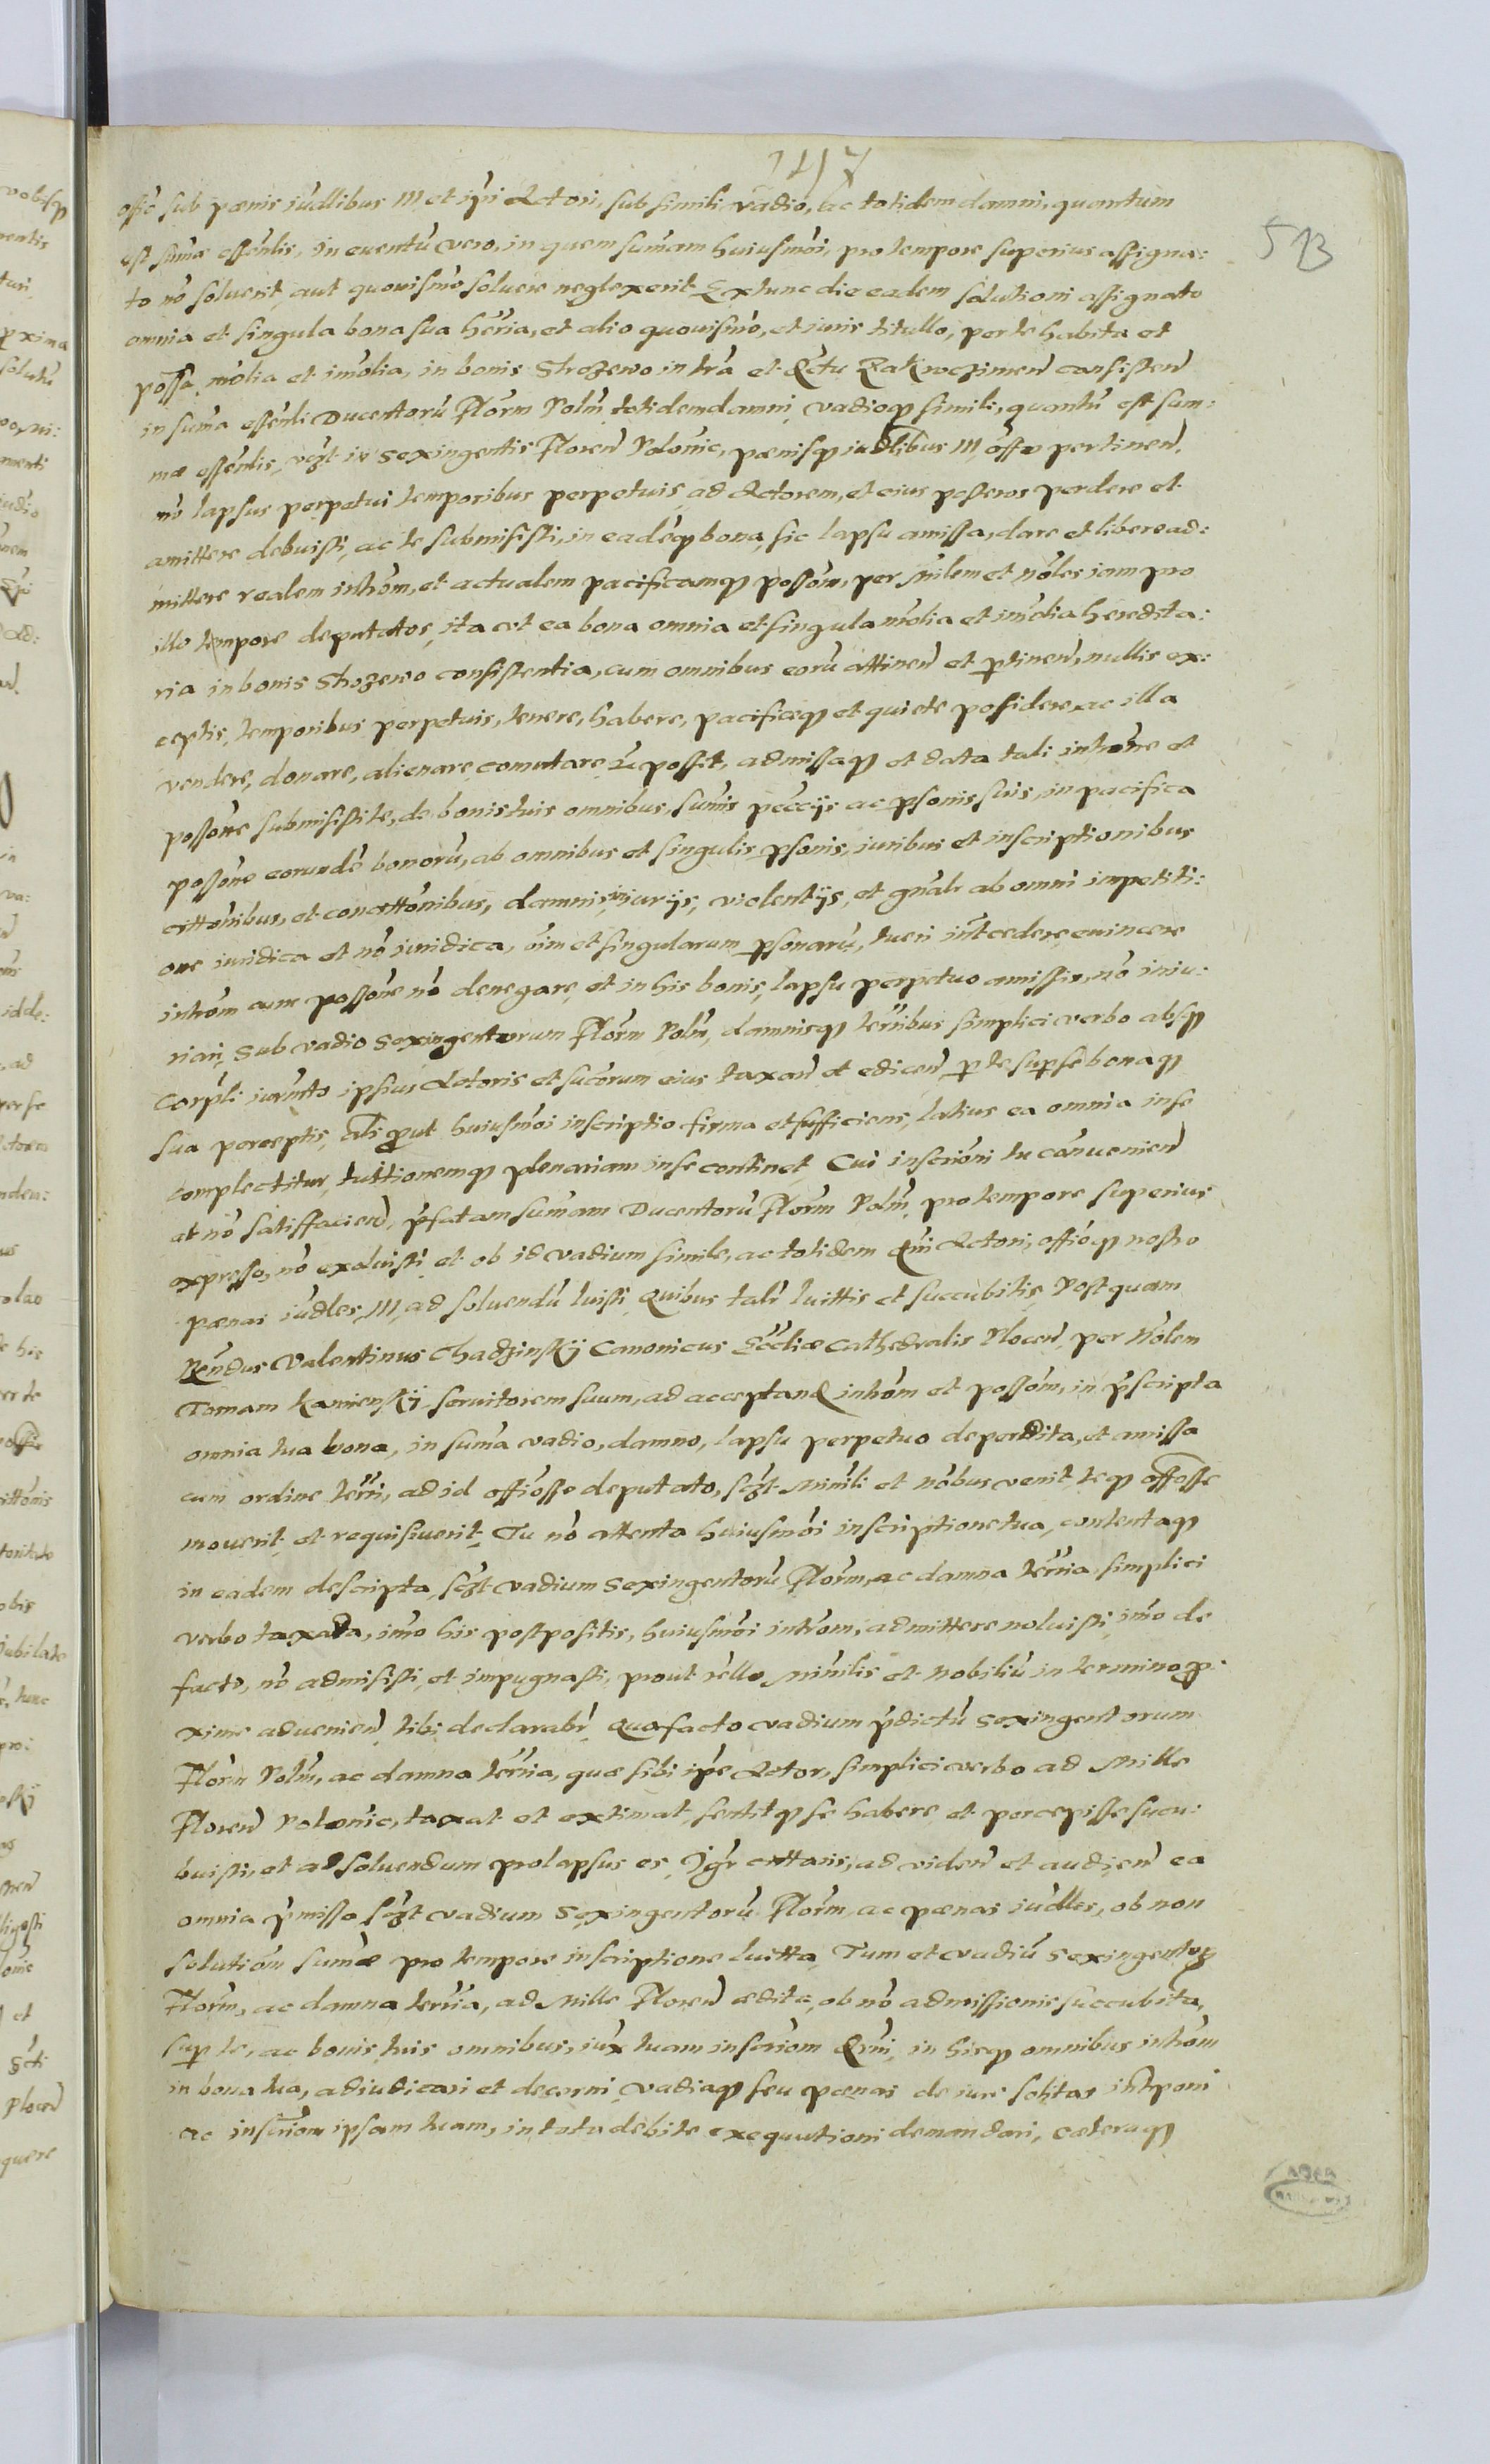 147
513
offo sub pœnis iudlibus III et ipi Actori, sub simili vadio, ac totidem damni, quantum
est sumæ essenlis, In euentu vero, in quem sumam huiusmoi, pro tempore superius assigna:
to no soluerit, aut quouismo soluere neglexerit Extunc die eadem solutioni assignato
omnia et singula bona sua hæria, et alio quouismo, et iuris titullo, per te habita et
possa, molia et imolia, in bonis Strozewo in tra et Dctu Zakroczimen consisten
in suma essenli Ducentoru Florm Polm totidem damni, vadioq simili, quantu est sum:
mæ essenlis, vczt in sexingentis Floren Polonic, pœnisq iudlibus III offo pertinen,
no lapsus perpetui temporibus perpetuis ad Actorem, et eius posteros perdere et
amittere debuisti, ac te submisisti, in eadeq bona, sic lapsu amissa, dare et libere ad:
mittere realem introm, et actualem pacificamq possom, per Milem et Noles iam pro
illo tempore deputatos, ita vt ea bona omnia et singula molia et imolia heredita:
ria in bonis Strozewo consistentia, cum omnibus eoru attinen et ptinen, nullis ex:
ceptis, temporibus perpetuis, tenere, habere, pacificeq et quiete possidere, ac illa
vendere, donare, alienare, comutare posset, admissaq et data tali introne et
possone submisisti te, de bonis tuis omnibus, sumis pecciis ac psonis suis, in pacifica
possone eorunde bonoru, ab omnibus et singulis psonis, iuribus et inscriptionibus
cittonibus, et conattonibus, damnis, iniurijs, violentijs, et gnalr ab omni impetiti:
one iuridica et no iuridica, oim et singularum psonaru, tueri intcedere, euincere
introm cum possone no denegare, et in his bonis, lapsu perpetuo amissis, no iniu:
riari, sub vadio sexingentorum Florm Polm, damnisq terribus simplici verbo absq
corpli iurmto ipsius Actoris et sucorum eius taxan et edicen p te sup se bonaq
sua perceptis, ali put huiusmoi inscriptio firma et sufficiens, latius ea omnia in se
complectitur, tuttionemq plenariam in se continet, Cui inscrioni tu conuenien
at no satisfacien, pfatam sumam Ducentoru Florm Polm, pro tempore superius
expresso, no exoluisti et ob id vadium simile, ac totidem Actori, offioq nostro
pœnas iudles, III ad soluendu luisti Quibus talr luittis et succubitis Postquam
Rendus Valentinus Chadzinskij Canonicus Eccliæ Cathedralis Plocen, per Nolem
Tomam Kamienskij seruitorem suum, ad acceptan introm et possom, in pscripta
omnia tua bona, in suma vadio, damno, lapsu perpetuo deperdita, et amissa
cum ordine terri, ad id offiosse deputato, sczt Minili et Nobus venit, teq offosse
mouerit et requisiuerit, Tu no attenta huiusmoi inscriptione tua, contentaq
in eadem descripta, sczt vadium sexingentoru Florm, ac damna terria simplici
verbo taxata, imo his postpositis, huiusmoi introm, admittere noluisti, imo de
facto, no admisisti, et impugnasti, prout rello Minilis et Nobiliu in termino p:
xime aduenien tibi declarabr Quo facto vadium pdictu sexingentorum
Florm Polm, ac damna terria, quæ sibi ipe Actor, simplici verbo ad Mille
Floren Polonic, taxat et extimat, sentitq se habere et percepisse sucu:
buisti, et ad soluendum prolapsus es, Igr cittaris, ad viden et audien ea
omnia pmissa sczt vadium Sexingentoru Florm ac pœnas iudles, ob non
solutiom sumæ pro tempore inscriptione luitta Tum et vadiu sexingentoz
Florm, ac damna terria, ad Mille Floren ædita, ob no admissionis succubita,
sup te, ac bonis tuis omnibus, iux tuam inscriom in hisq omnibus introm
in bona tua, adiudicari et decerni, vadiaq seu pœnas de iure solitas intponi
ac inscriom ipsam tuam, in toto debite exequutioni demandari, cæteraq